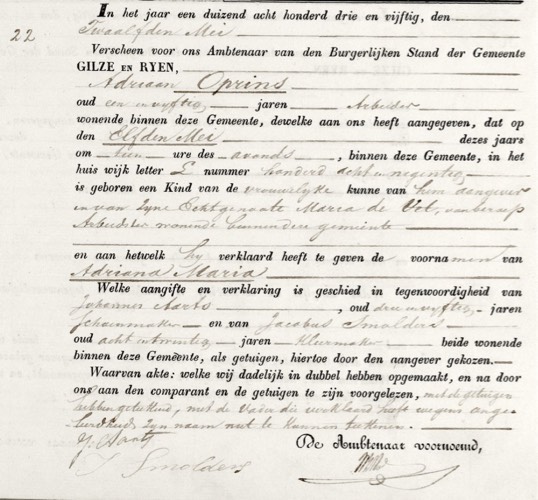 In het jaar een duizend acht honderd drie en vijftig, den
22 Twaalfden Mei
Verscheen voor ons Ambtenaar van den Burgerlijken Stand der Gemeente
GILZE EN RYEN,
Adriaan Oprins
oud een en vyftig jaren Arbeider
wonende binnen deze Gemeente, dewelke aan ons heeft aangegeven, dat op
den Elfden Mei dezes jaars
om tien ure des avonds, binnen deze Gemeente, in het
huis wijk letter E nummer honderd acht en negentig
is geboren een Kind van de vrouwelyke kunne van hem aangever
en van zyne Echtgenoote Maria de Vet, van beroep
Arbeidster wonende binnen deze gemeente
en aan hetwelk hy verklaard heeft te geven de voornamen van
Adriana Maria
Welke aangifte en verklaring is geschied in tegenwoordigheid van
Johannes Aarts, oud drie en vyftig jaren
Schoenmaker en van Jacobus Smolders
oud acht en twintig jaren Kleermaker beide wonende
binnen deze Gemeente, als getuigen, hiertoe door den aangever gekozen.
Waarvan akte: welke wij dadelijk in dubbel hebben opgemaakt, en na door
ons aan den comparant en de getuigen te zijn voorgelezen, met de getuigen
hebben geteekend, met de Vader die verklaard heeft wegens onge-
leerdheid zyn naam niet te kunnen teekenen.
J. Aarts De Ambtenaar voornoemd,
Smolders